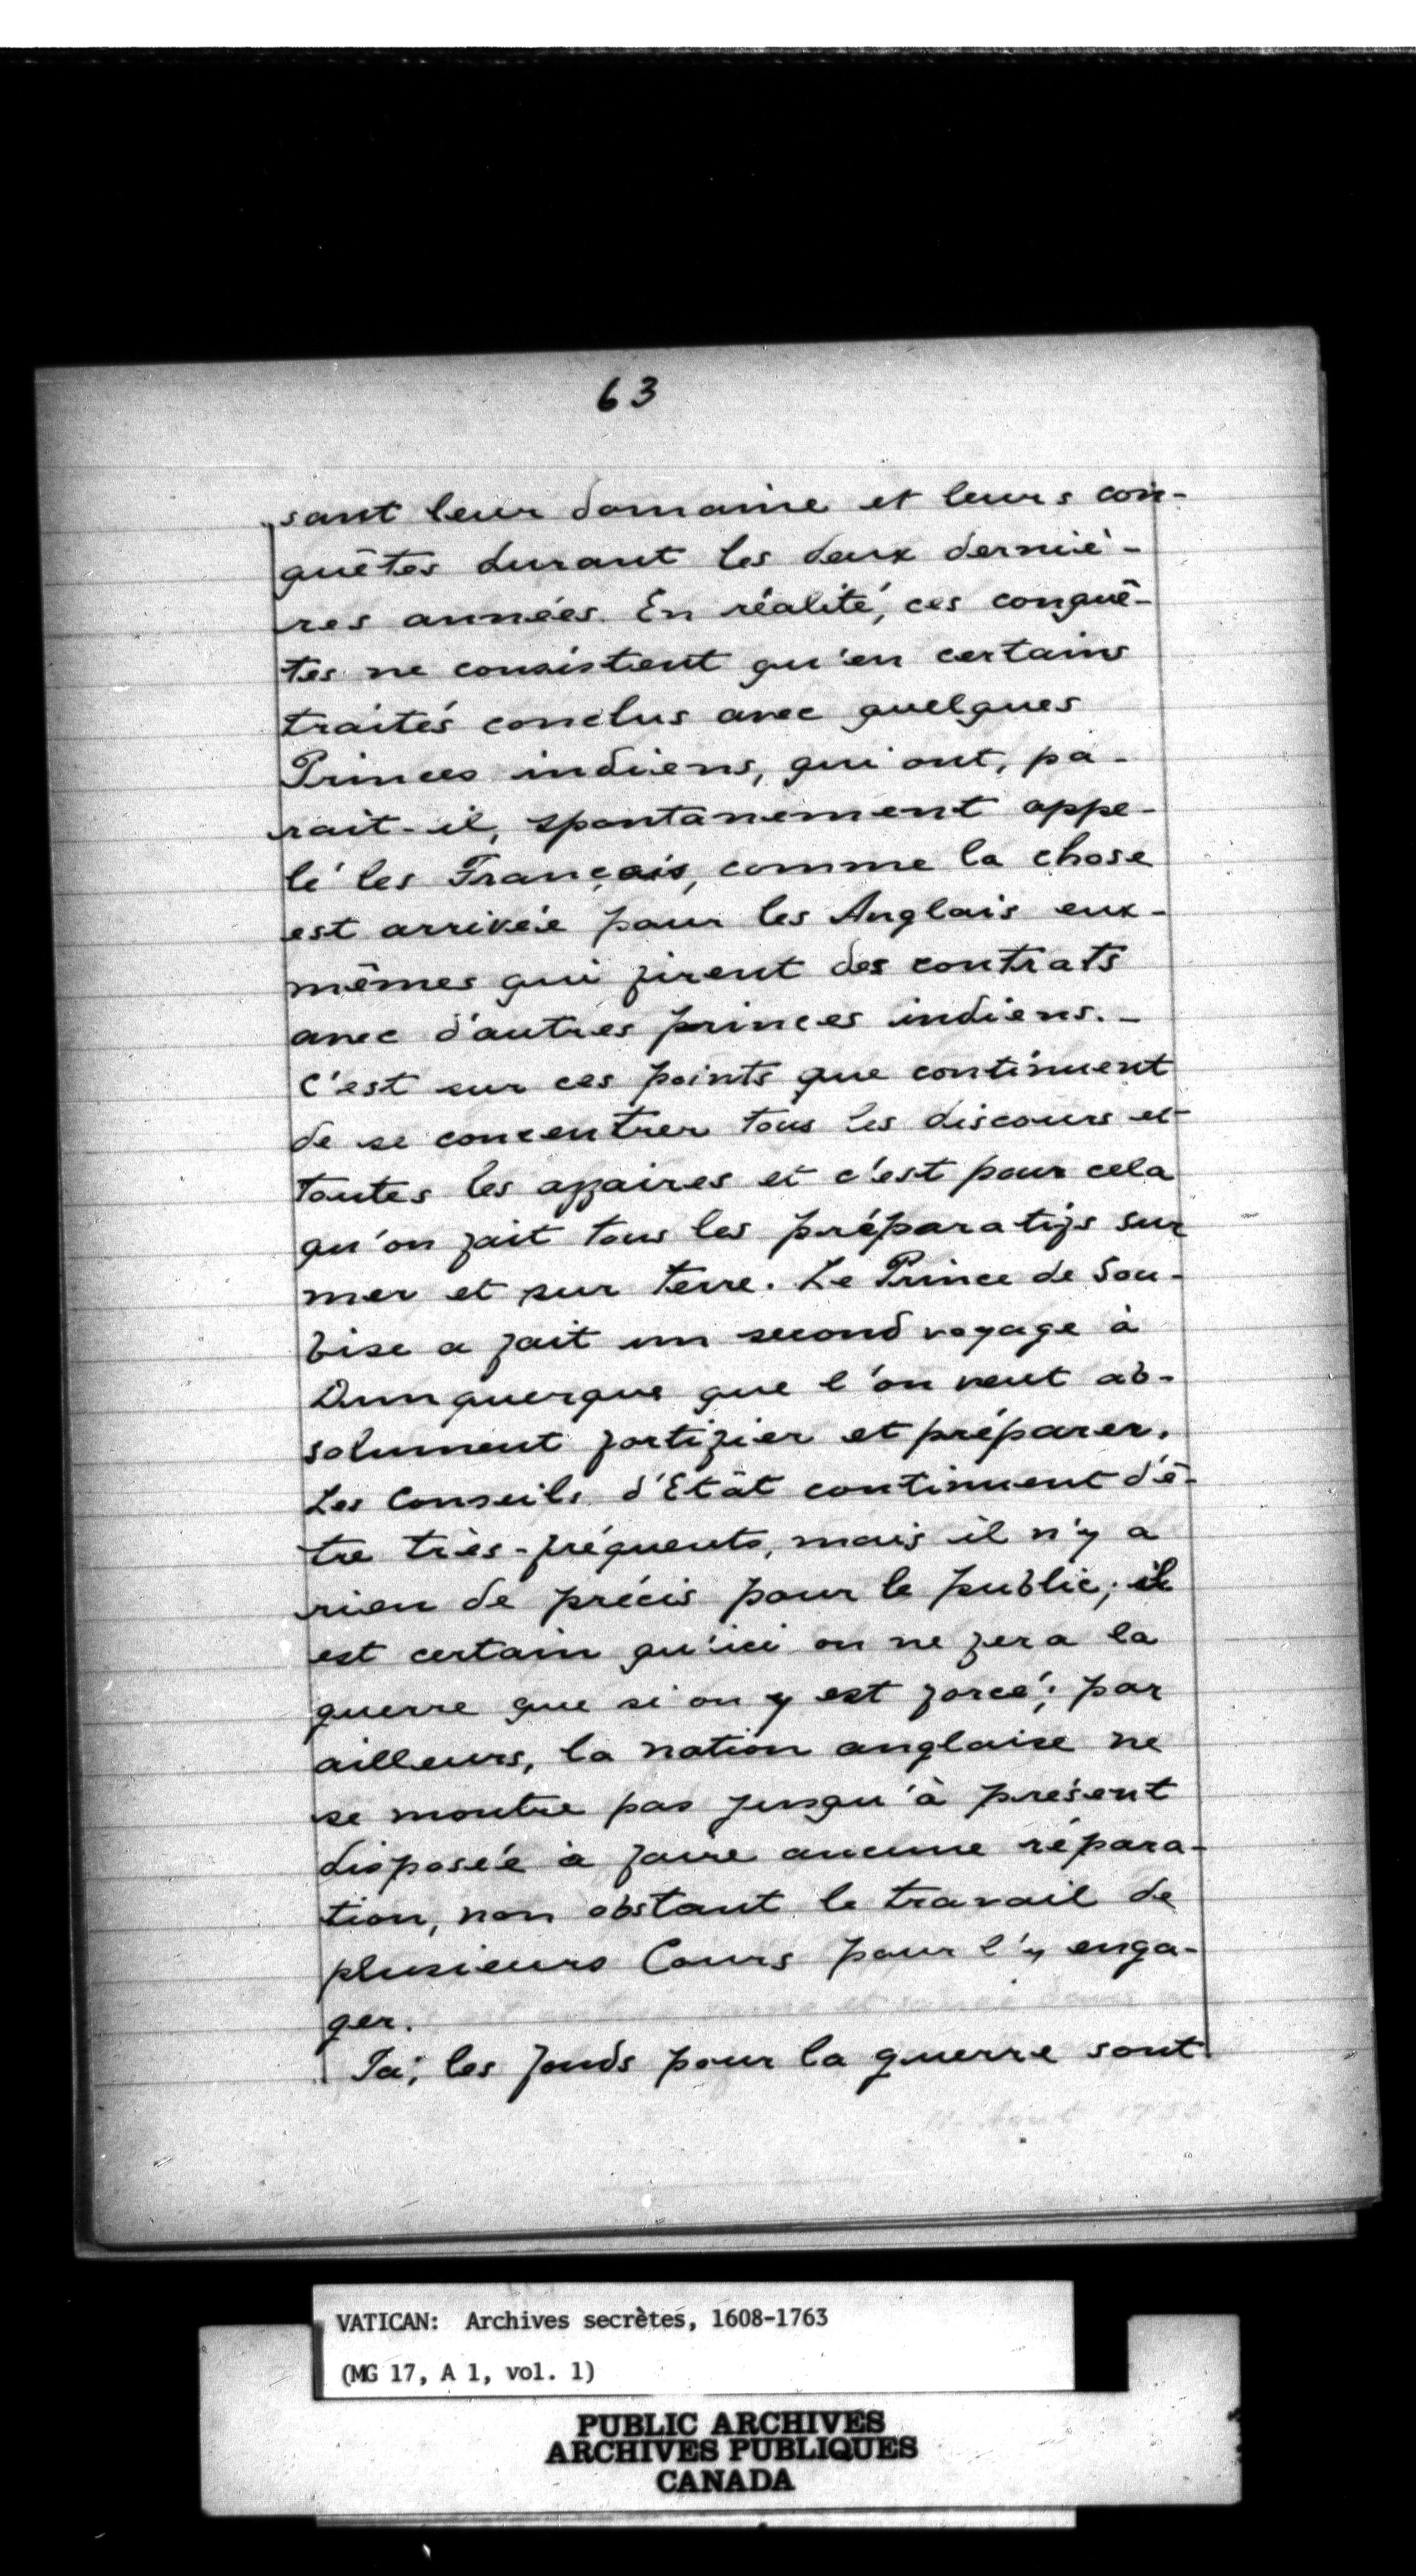 63
sant leur domaine et leurs con-
quêtes durant les deux derniè-
res années. En réalité, ces conquê-
tes ne consistent qu'en certains
traités conclus avec quelques
Princes indiens, qui ont, pa-
rait-il, spontanement appe-
lé les Français, comme la chose
est arrivée pour les Anglais eux-
mêmes qui firent des contrats
avec d'autres princes indiens. -
C'est sur ces points que continuent
de se concentrer tous les discours et
toutes les affaires et c'est pour cela
qu'on fait tous les préparatifs sur
mer et sur terre. Le Prince de Sou-
bise a fait un second voyage à
Dunquerque que l'on veut ab-
solument fortifier et préparer.
Les Conseils d'Etat continuent d'ê-
tre très-fréquents, mais il n'y a
rien de précis pour le public; il
est certain qu'ici on ne fera la
guerre que si on y est forcé; par
ailleurs, la nation anglaise ne
se montre pas jusqu'à présent
disposée à faire aucune répara-
tion, non obstant le travail de
plusieurs Cours pour l'y enga-
ger.
les fonds pour la guerre sont
VATICAN: Archives secrètes, 1608-1763
(MG 17, A 1, vol. 1)
PUBLIC ARCHIVES
ARCHIVES PUBLIQUES
CANADA